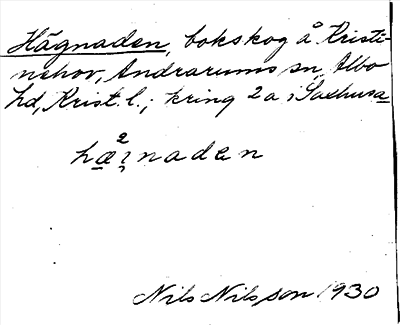 Hägnaden, bokskog å Kristi-
nehov, Andrarums sn, Albo
hd, Krist. l.; kring 2a i Saxhusa
hæ²i̯naden
Nils Nilsson 1930